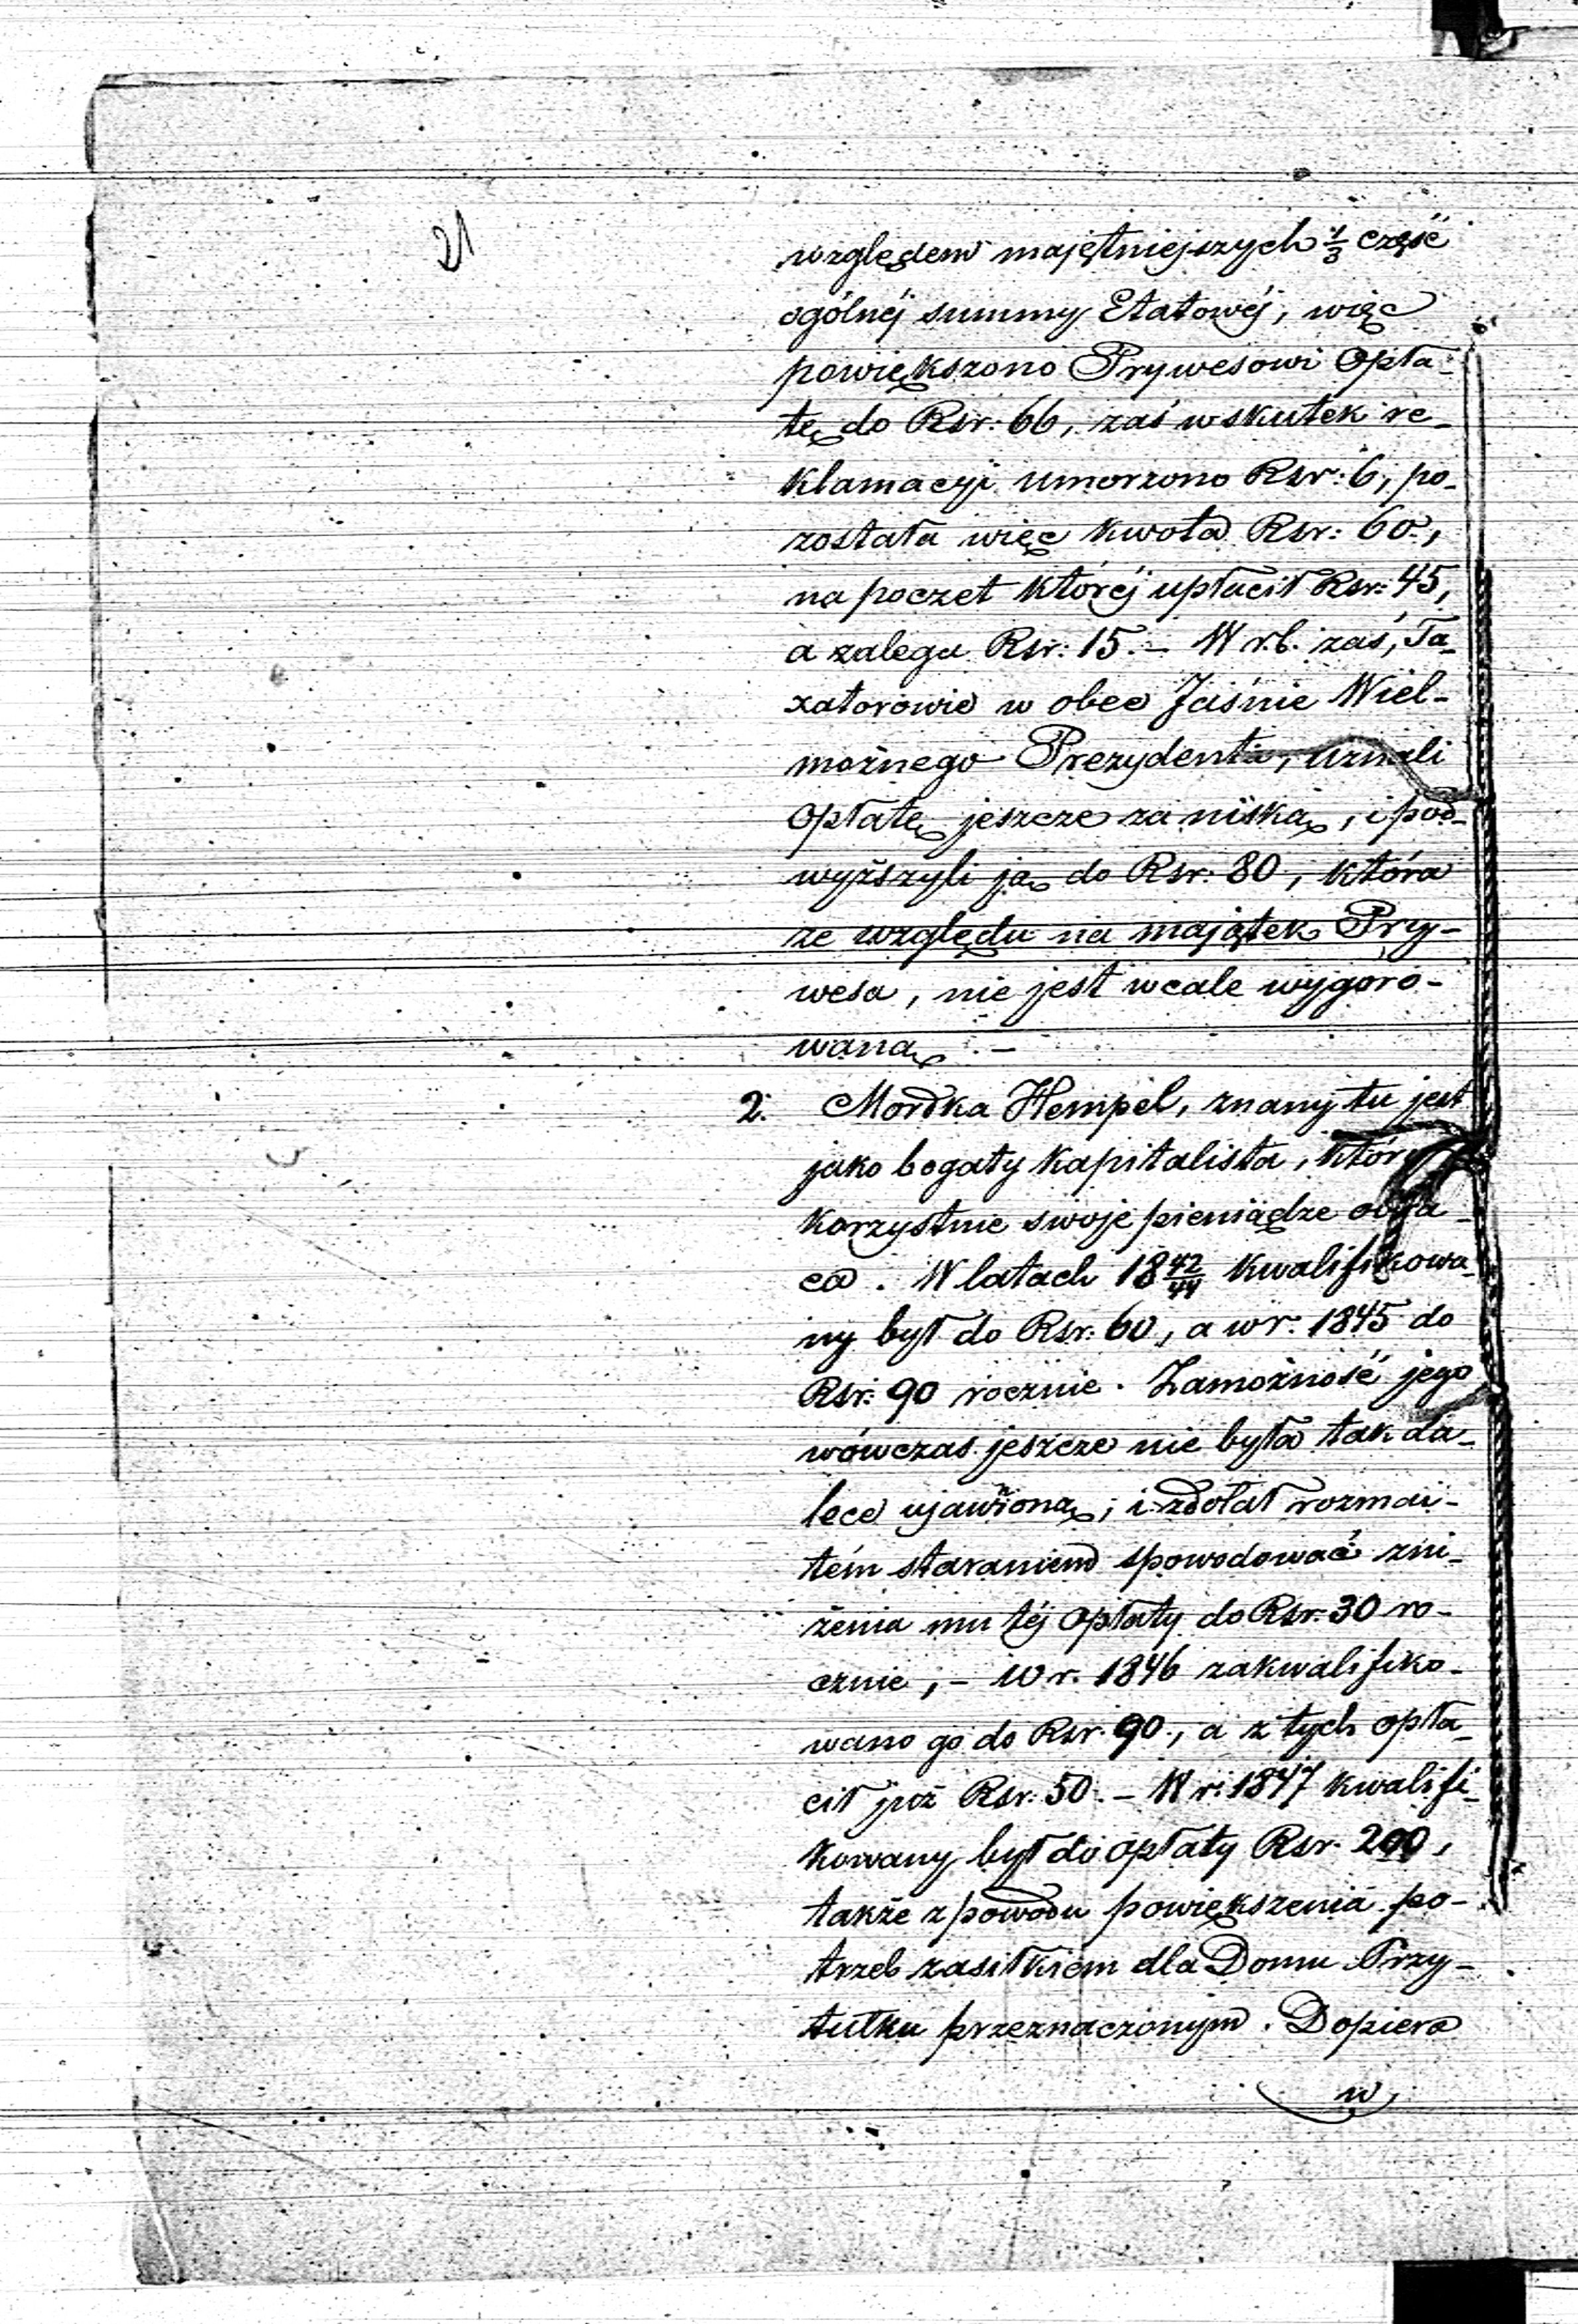 21
względem majętniejszych 1/3 część
ogólnéj summy Etatowéj, więc
powiększono Prywesowi Opła-
tę do Rsr: 66, zaś wskutek re-
klamacyi umorzono Rsr: 6, po-
została więc kwota Rsr: 60,
na poczet któréj upłacił Rsr: 45,
a zalega Rsr: 15. – W r.b. zaś, Ta-
xatorowie w obec Jaśnie Wiel-
możnego Prezydenta, uznali
Opłatę jeszcze za niską, i pod-
wyższyli ją do Rsr: 80, która
ze względu na majątek Pry-
wesa, nie jest wcale wygoro-
waną. –
2. Mordka Hempel, znany tu jest
jako bogaty kapitalista, który
korzystnie swoje pieniądze obra-
ca. W latach 18 42/44 kwalifikowa-
ny był do Rsr: 60, a w r. 1845 do
Rsr: 90 rocznie. Zamożność jego
wówczas jeszcze nie była tak da-
lece ujawioną, i zdołał rozmai-
tém staraniem spowodować zni-
żenia mu téj opłaty do Rsr: 30 ro-
cznie, – w r. 1846 zakwalifiko-
wano go do Rsr. 90, a z tych opła-
cił już Rsr: 50. – W r. 1847 kwalifi-
kowany był do opłaty Rsr. 200,
także z powodu powiększenia po-
trzeb zasiłkiem dla Domu Przy-
tułku przeznaczonym. Dopiero
w